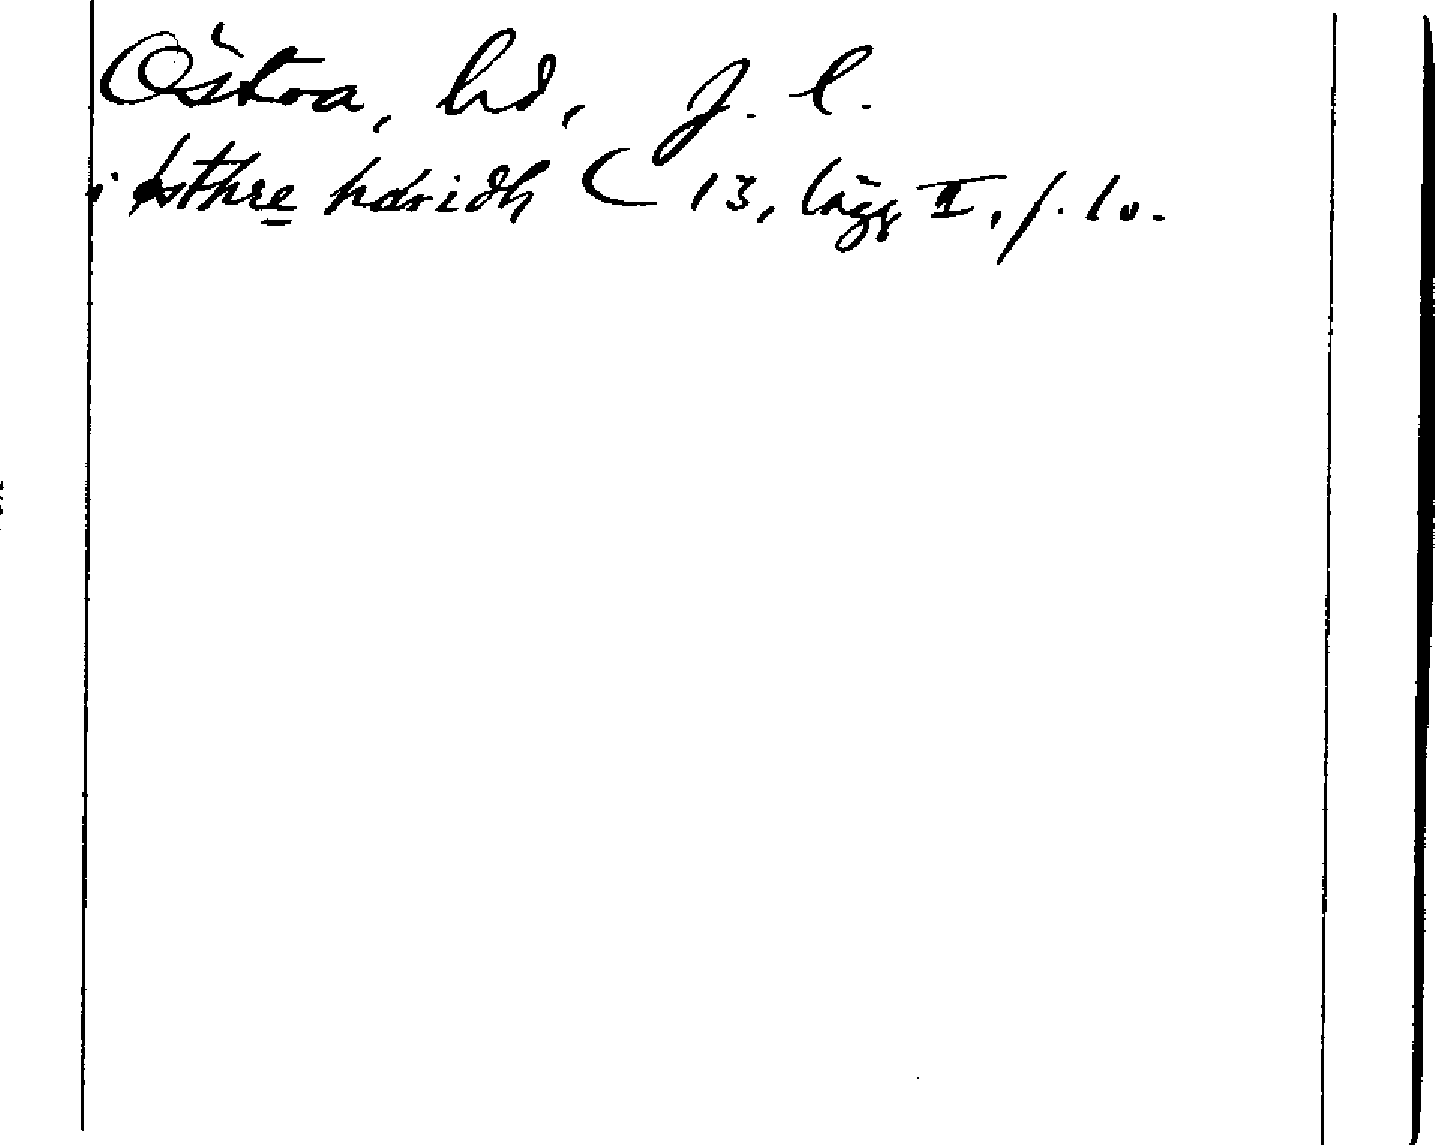 Östra, hd, J. l.
i østhre hæridh C 13, lägg II, f. 10.